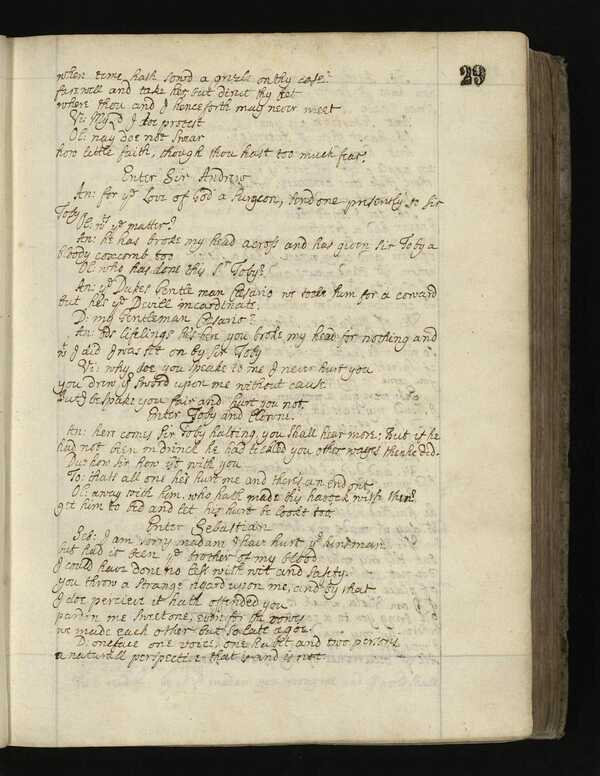 29
when time hath sow'd a grizle on thy case?
farewell and take her, but direct thy feet
where thou and I henceforth may never meet
Vi: My Ld I doe protest
Ol: nay doe not swear
hou little faith, though thou hast too much fear.
Enter Sir Andrew
An: for ye Love of God a Surgeon, send one presently to Sir
Toby
Ol: wt ye matter?
An: he has broke my head across and has given Sir Toby a
bloody coxcomb too
Ol: who has done this Sr Toby?
An: ye Dukes Gentle man Cesario we took him for a coward
but he's ye Devill incardinate.
D: my Gentleman Cesario?
An: Ods lifelings he's here, you broke my head for nothing and
wt I did I was set on by Sir Toby
Vi: why doe you speake to me I never hurt you
you drew yr sword upon me without cause
But I bespake you fair and hurt you not.
Enter Toby and Clowne.
An: here comes Sir Toby halting, you shall hear more; But if he
had not been in drinck he had tickled you other wayes then he did.
Du: how Sir how ist with you
To: thats all one he's hurt me and there's an End ont
Ol: away with him, who hath made this havock with them?
get him to bed and let his hurt be lookt too
Enter Sebastian
Seb: I am sorry madam I have hurt yr kinsman
but had it been ye brother of my blood
I could have done no less with wit and safety.
you throw a strange regard upon me, and by that
I doe perceive it hath offended you
pardon me sweet one, even for the vowes
we made each other but so late agoe.
D: one face one voice, one habit and two persons
a naturall perspective that is and is not.